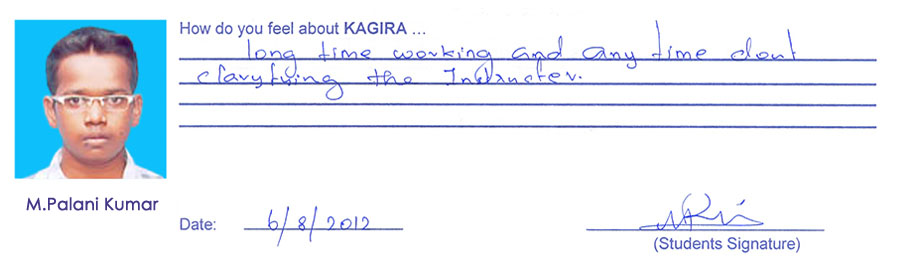 How do you feel about KAGIRA ...
long time working and any time dout
claryfying the Instructer.
M.Palani Kumar
Date: 6/8/2012
(Students Signature)